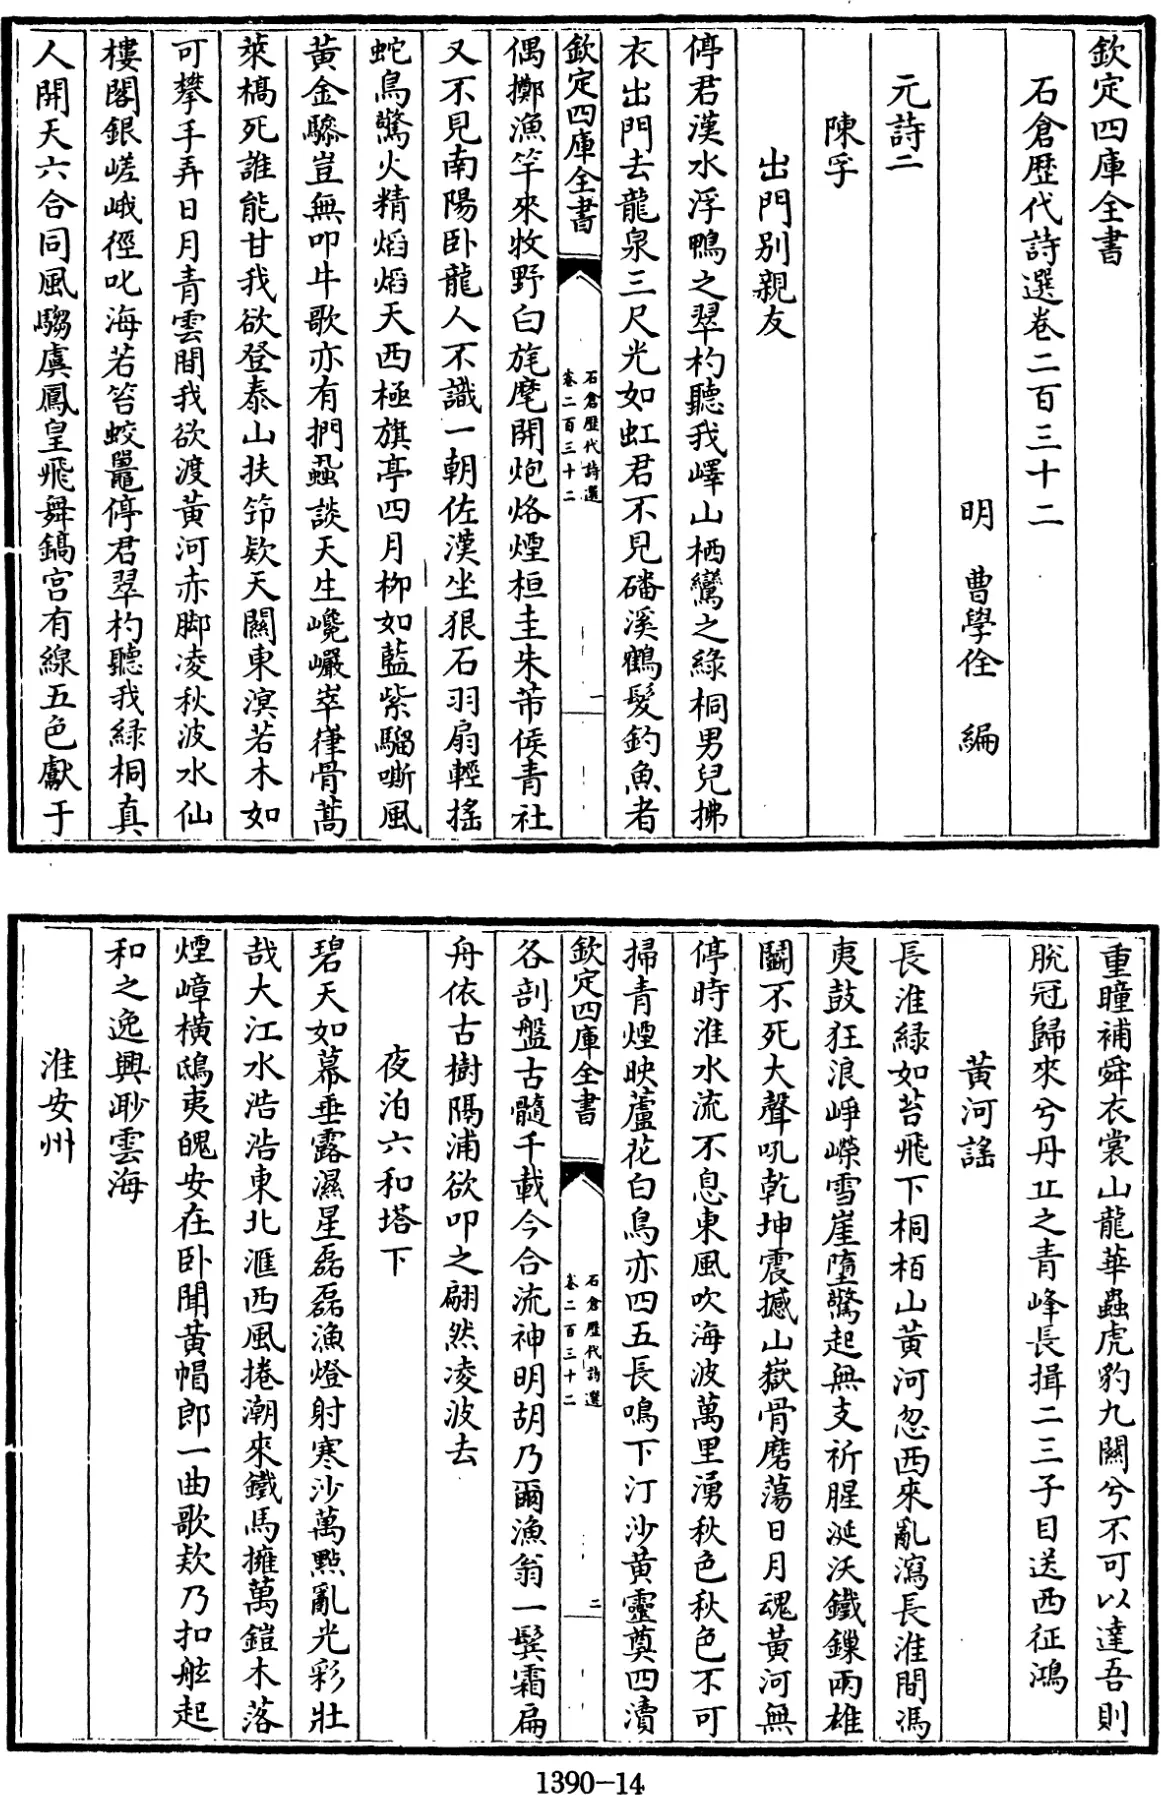 欽定四庫全書
石倉歷代詩選卷二百三十二
明 曹學佺 編
元詩二
陳孚
出門別親友
停君漢水浮鴨之翠杓聽我嶧山栖鸞之綠桐男兒拂
衣出門去龍泉三尺光如虹君不見磻溪鶴髮釣魚者
欽定四庫全書
石倉歷代詩選
卷二百三十二
一
偶擲漁竿來牧野白旄麾開炮烙煙桓圭朱芾侯青社
又不見南陽卧龍人不識一朝佐漢坐狠石羽扇輕搖
蛇鳥驚火精熖熖天西極旗亭四月栁如藍紫騮嘶風
黃金驂豈無叩牛歌亦有捫蝨談天生巉巖崒嵂骨蒿
萊槁死誰能甘我欲登泰山扶笻欵天闗東溟若木如
可攀手弄日月青雲間我欲渡黃河赤脚凌秋波水仙
樓閣銀嵯峨徑叱海若笞蛟鼉停君翠杓聽我綠桐真
人開天六合同風騶虞鳳皇飛舞鎬宫有線五色獻于
重瞳補舜衣裳山龍華蟲虎豹九闗兮不可以達吾則
脫冠歸來兮丹丘之青峰長揖二三子目送西征鴻
黃河謠
長淮緑如苔飛下桐栢山黃河忽西來亂瀉長淮間馮
夷鼓狂浪崢嶸雪崖墮驚起無支祈腥涎沃鐵鏁兩雄
鬭不死大聲吼乾坤震撼山嶽骨磨蕩日月魂黃河無
停時淮水流不息東風吹海波萬里湧秋色秋色不可
掃青煙映蘆花白鳥亦四五長鳴下汀沙黄靈奠四瀆
欽定四庫全書
石倉歷代詩選
卷二百三十二
二
各剖盤古髓千載今合流神明胡乃爾漁翁一鬓霜扁
舟依古樹隔浦欲叩之翩然凌波去
夜泊六和塔下
碧天如幕垂露濕星磊磊漁燈射寒沙萬點亂光彩壯
哉大江水浩浩東北滙西風捲潮來鐵馬擁萬鎧木落
煙嶂橫鴟夷魄安在卧聞黃帽郎一曲歌欵乃扣舷起
和之逸興渺雲海
淮安州
1390-14